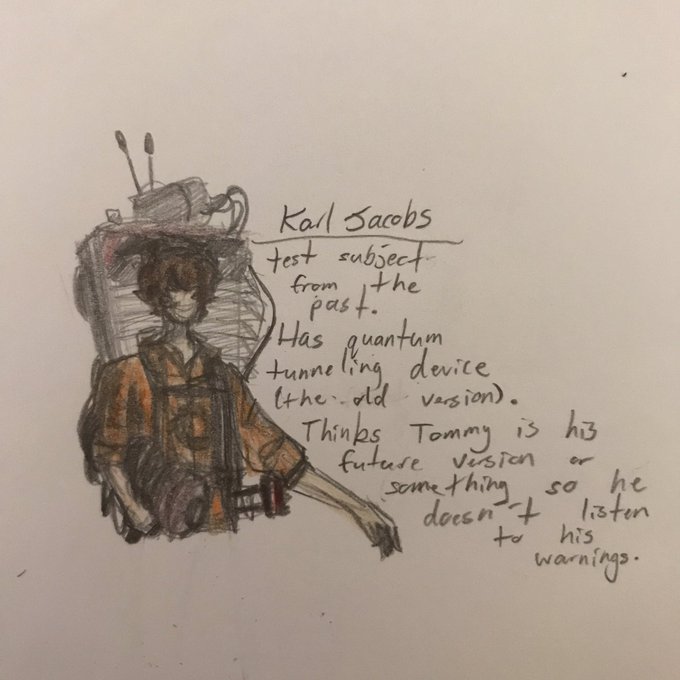 Karl Jacobs
test subject
from the
past.
Has quantum
tunneling device
(the old version).
Thinks Tommy is his
future version or
something so he
doesn't listen
to his
warnings.